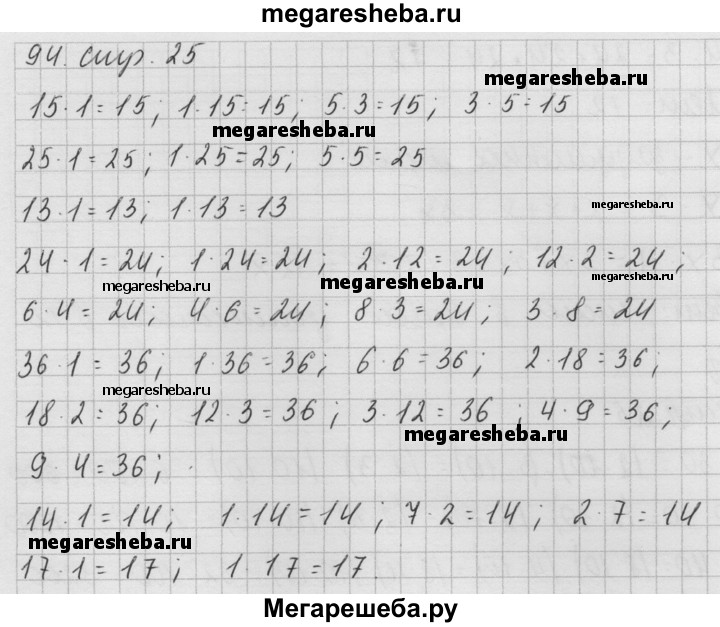 megaresheba.ru
94. стр. 25
megaresheba.ru
15·1=15; 1·15=15; 5·3=15; 3·5=15
megaresheba.ru
25·1=25; 1·25=25; 5·5=25
13·1=13; 1·13=13
megaresheba.ru
24·1=24; 1·24=24; 2·12=24; 12·2=24;
megaresheba.ru megaresheba.ru megaresheba.ru
6·4=24; 4·6=24; 8·3=24; 3·8=24
36·1=36; 1·36=36; 6·6=36; 2·18=36;
megaresheba.ru
18·2=36; 12·3=36; 3·12=36; 4·9=36;
megaresheba.ru
9·4=36;
14·1=14; 1·14=14; 7·2=14; 2·7=14
megaresheba.ru
17·1=17; 1·17=17.
Мегарешеба.ру